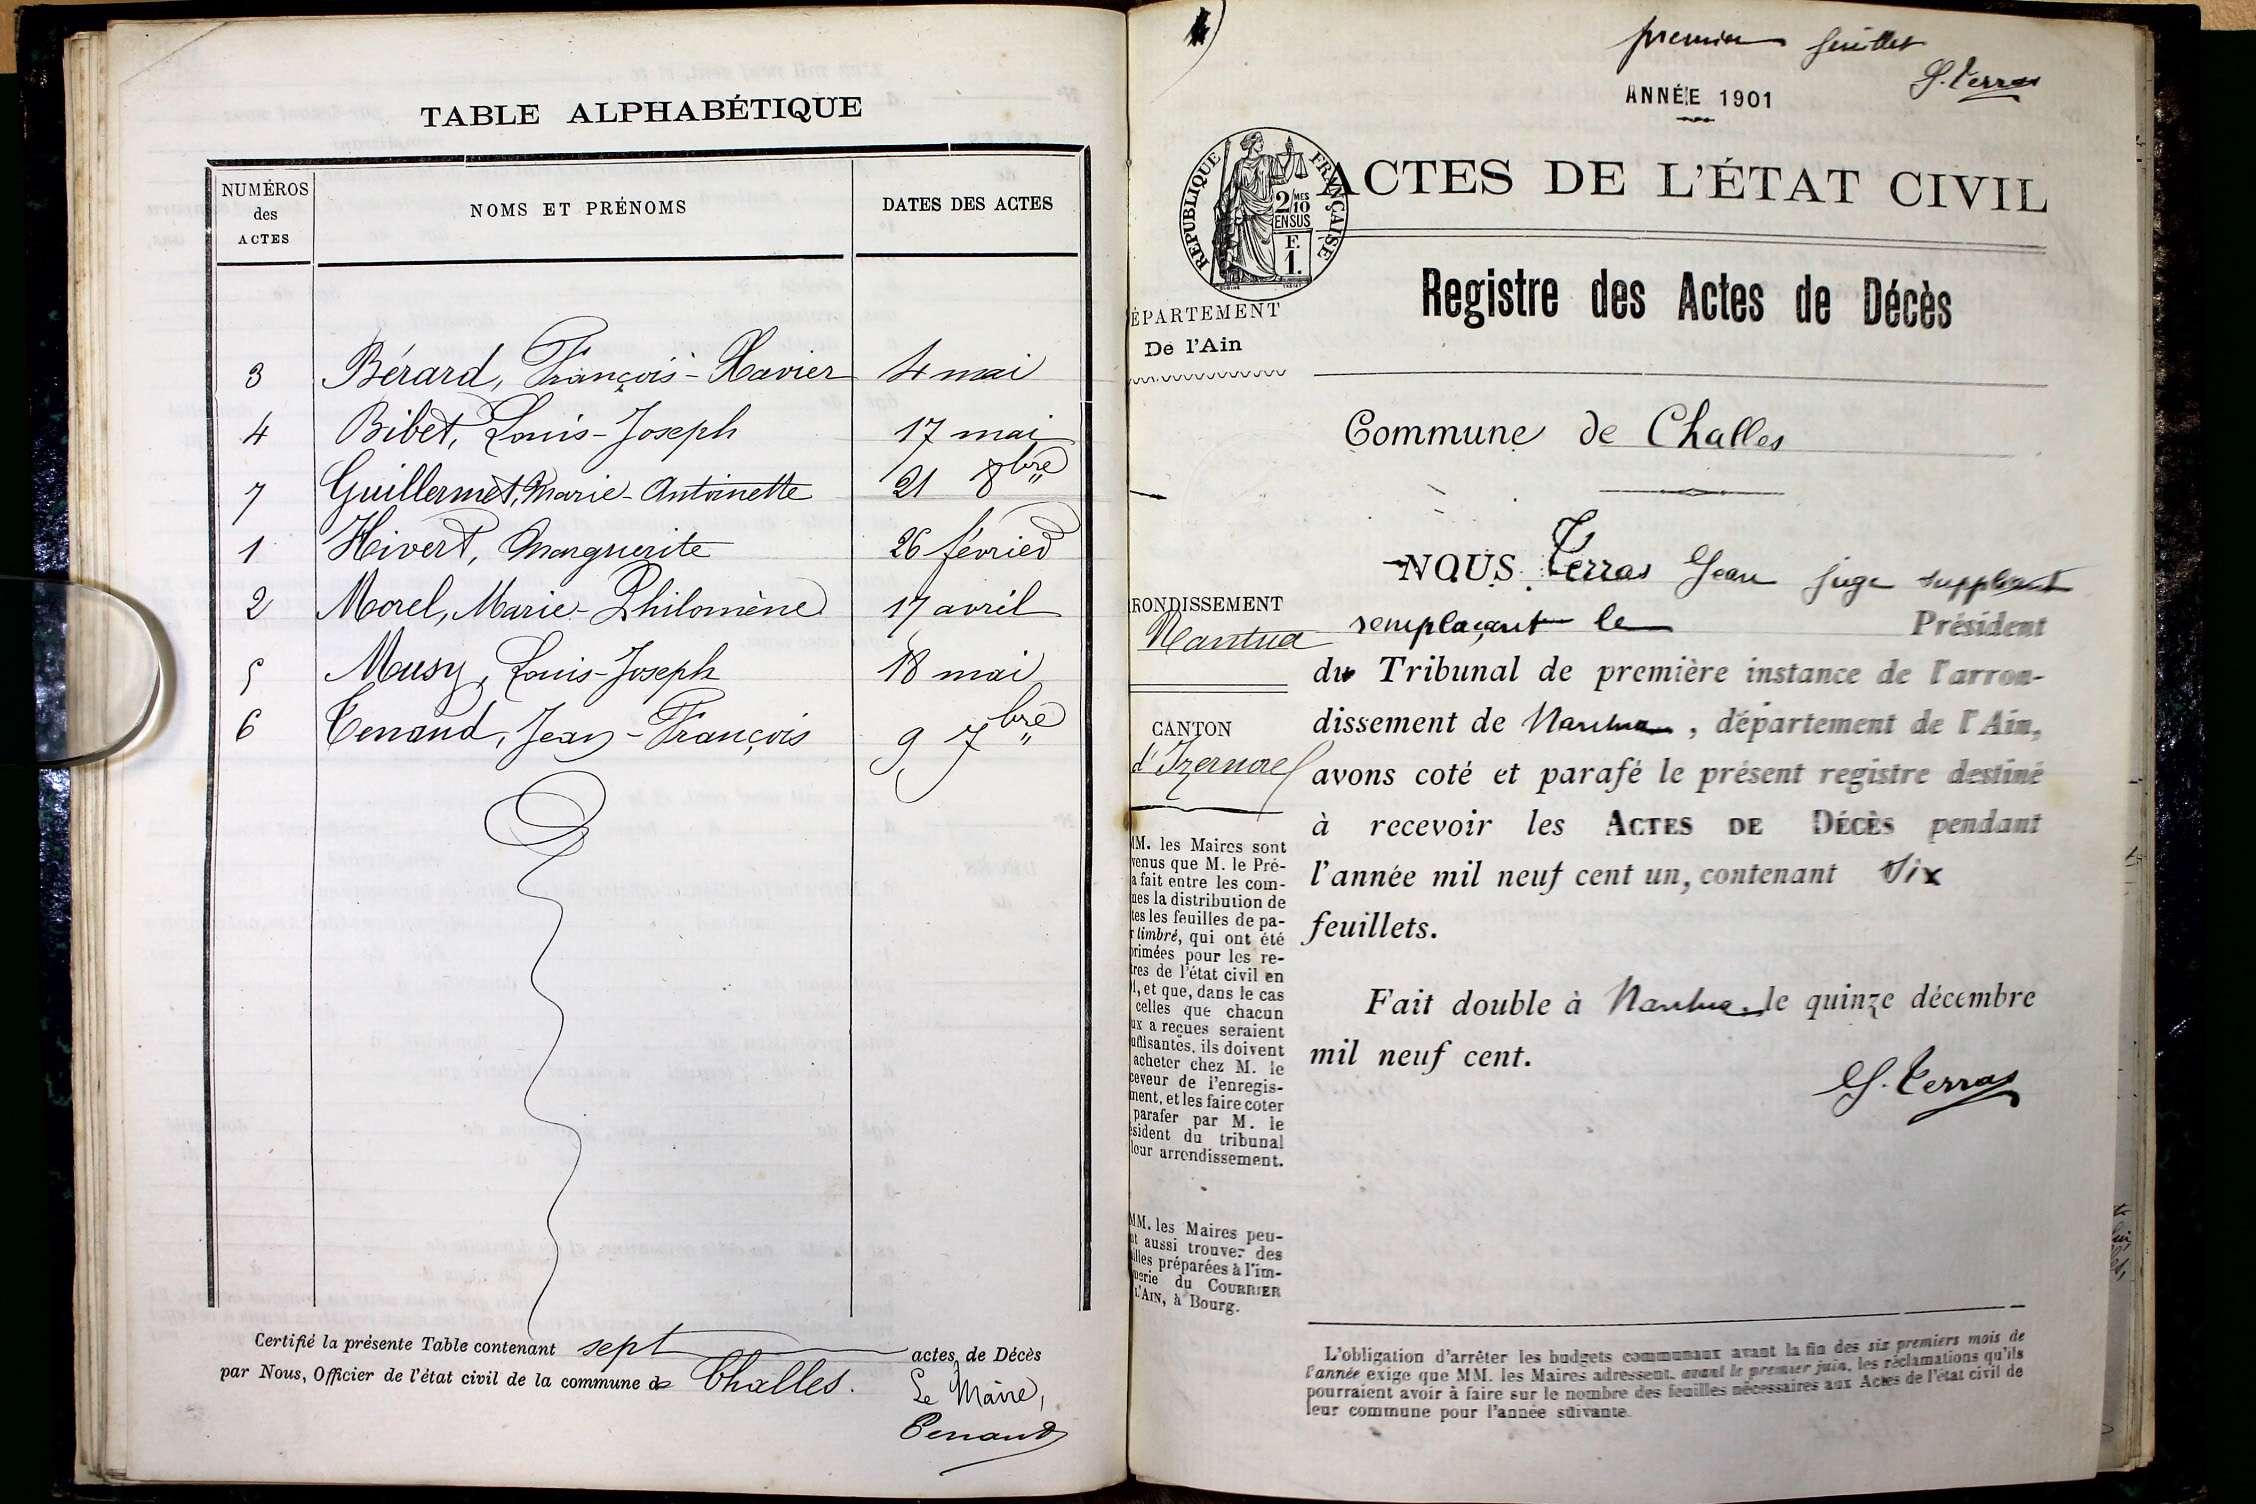 TABLE ALPHABÉTIQUE
NUMÉROS des ACTES
NOMS ET PRÉNOMS
DATES DES ACTES
3 Bérard, François-Xavier 4 mai
4 Bibet, Louis-Joseph 17 mai
7 Guillermet, Marie-Antoinette 21 8bre
1 Hivert, Marguerite 26 février
2 Morel, Marie-Philomène 17 avril
5 Musy, Louis-Joseph 18 mai
6 Tenand, Jean-François 9 7bre
Certifié la présente Table contenant sept actes de Décès
par Nous, Officier de l'état civil de la commune de Challes.
Le Maire,
Tenand
premier feuillet
G. Terras
ANNÉE 1901
RÉPUBLIQUE FRANÇAISE
2/10 MES
EN SUS
F.
1.
ACTES DE L'ÉTAT CIVIL
Registre des Actes de Décès
ÉPARTEMENT
De l'Ain
Commune de Challes
RONDISSEMENT
Nantua
CANTON
d'Izernore
NOUS Terras Jean juge suppléant
remplaçant le Président
du Tribunal de première instance de l'arron-
dissement de Nantua, département de l'Ain,
avons coté et parafé le présent registre destiné
à recevoir les ACTES DE DÉCÈS pendant
l'année mil neuf cent un, contenant Six
feuillets.
Fait double à Nantua le quinze décembre
mil neuf cent.
G. Terras
MM. les Maires sont
venus que M. le Pré-
a fait entre les com-
nes la distribution de
tes les feuilles de pa-
r timbré, qui ont été
primées pour les re-
tres de l'état civil en
1, et que, dans le cas
celles que chacun
ux a reçues seraient
uffisantes, ils doivent
acheter chez M. le
ceveur de l'enregis-
ment, et les faire coter
parafer par M. le
ésident du tribunal
leur arrondissement.
MM. les Maires peu-
nt aussi trouver des
illes préparées à l'im-
merie du COURRIER
L'AIN, à Bourg.
L'obligation d'arrêter les budgets communaux avant la fin des six premiers mois de
l'année exige que MM. les Maires adressent, avant le premier juin, les réclamations qu'ils
pourraient avoir à faire sur le nombre des feuilles nécessaires aux Actes de l'état civil de
leur commune pour l'année suivante.